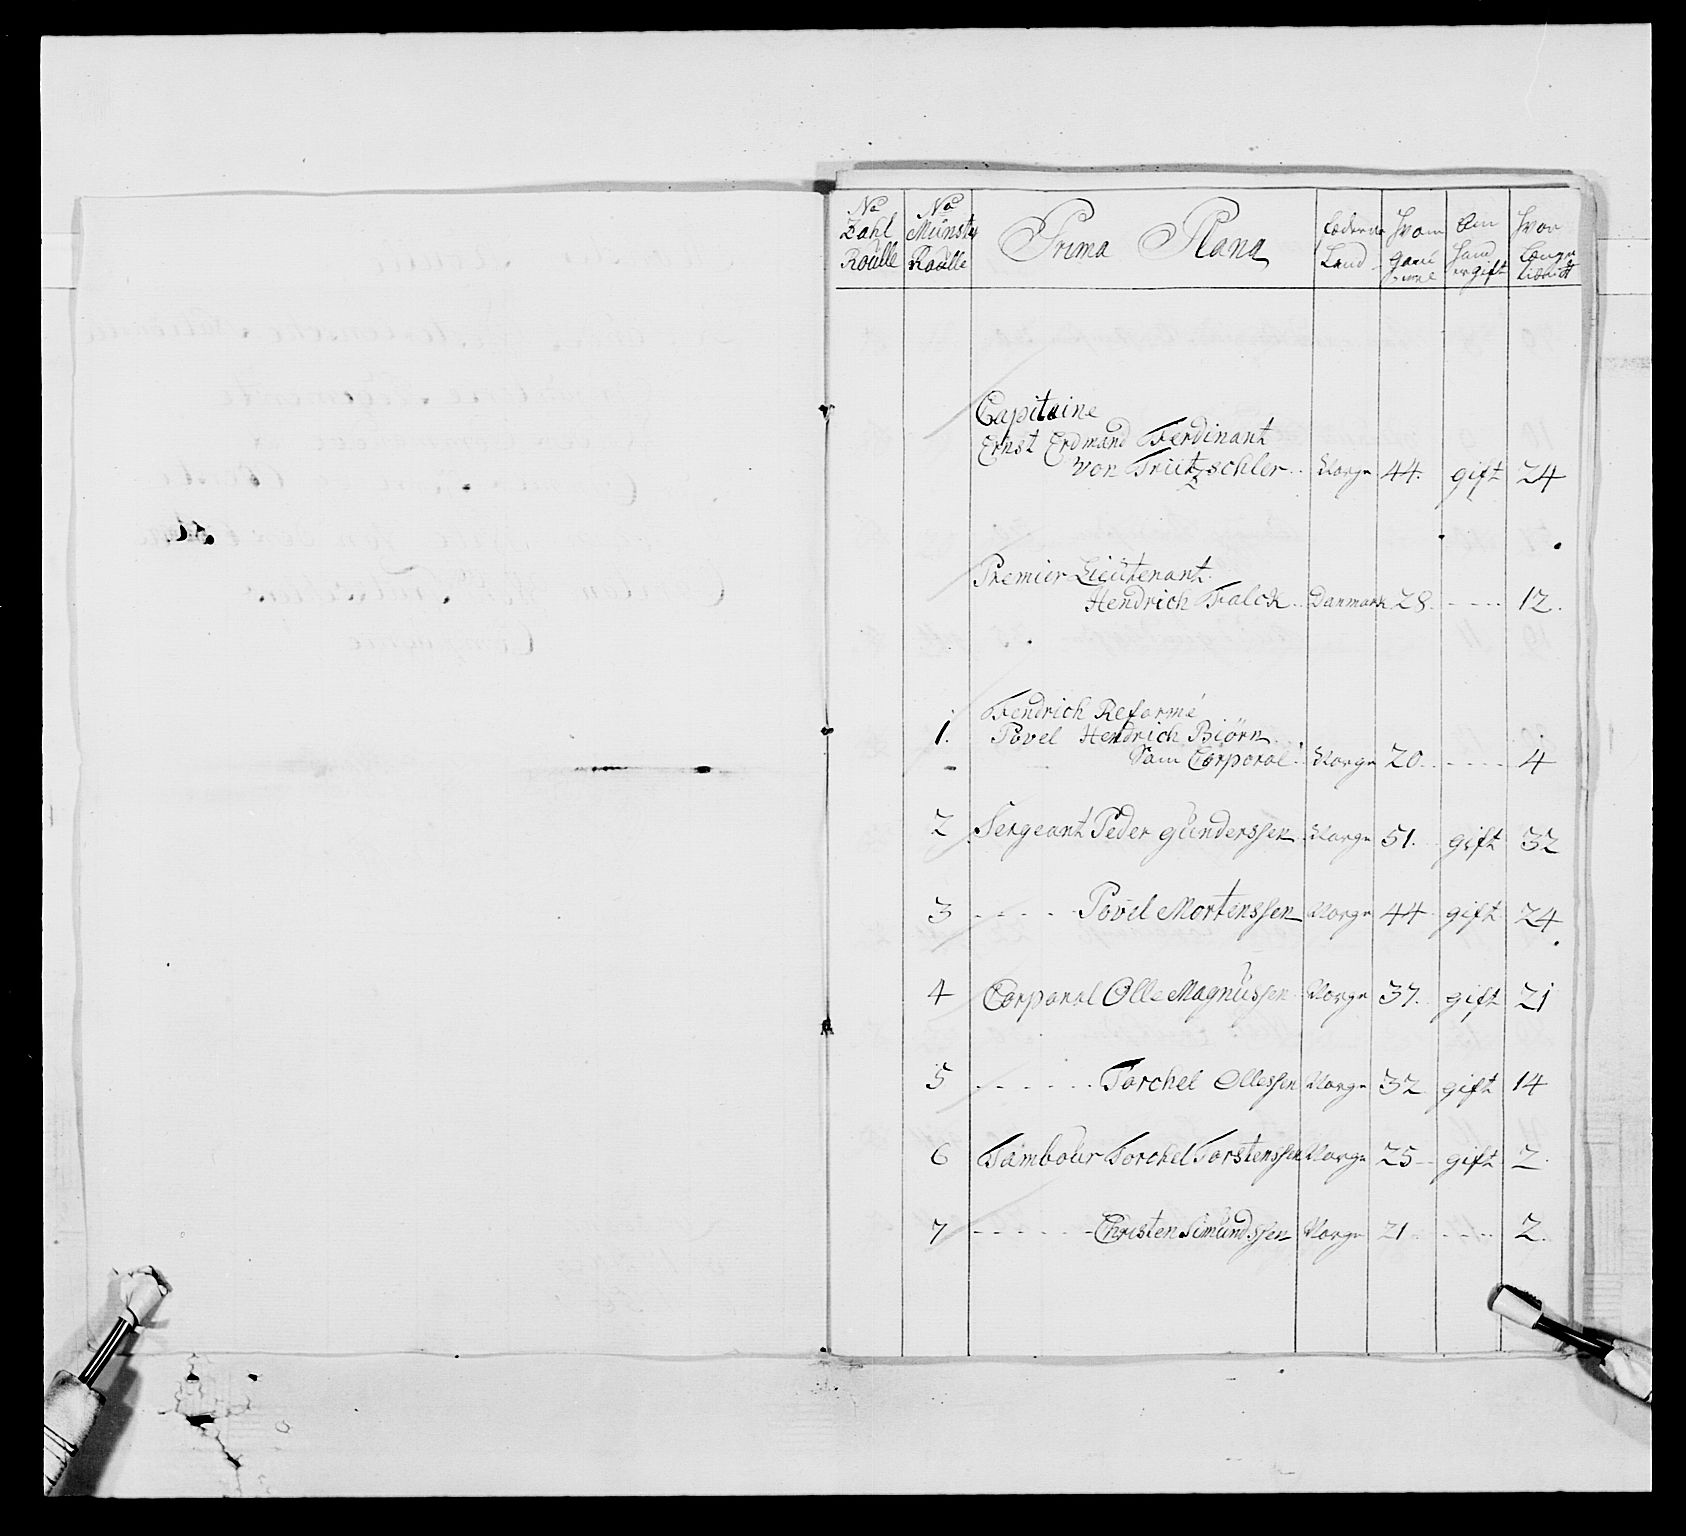 No Zahl Roulle | No Münster Roulle | Prima Plana | Land | Hvor gamel | Om Hand er gift | Hvor Længe tient
Capitaine
Ernst Erdmand Ferdinant
von Trützschler Norge 44. gift 24
Premier Lieutenant
Hendrich Falck Danmark 28. - - - - 12.
Fendrich Reformé
1. Povel Hendrich Biörn
Sam Corporal Norge 20. - - - - 4
2 Sergeant Peder Gunderssen Norge 51. gift 32
3 - - - - - Povel Mortenssen Norge 44 gift 24
4 Corporal Olle Magnüssen Norge 37. gift 21
5 - - - - - - Torchel Ollessen Norge 32 gift 14
6 Tambour Torchel Torstenssen Norge 25 - gift 2.
7 - - - - - - Christen Simündssen Norge 21. - - - - 2.